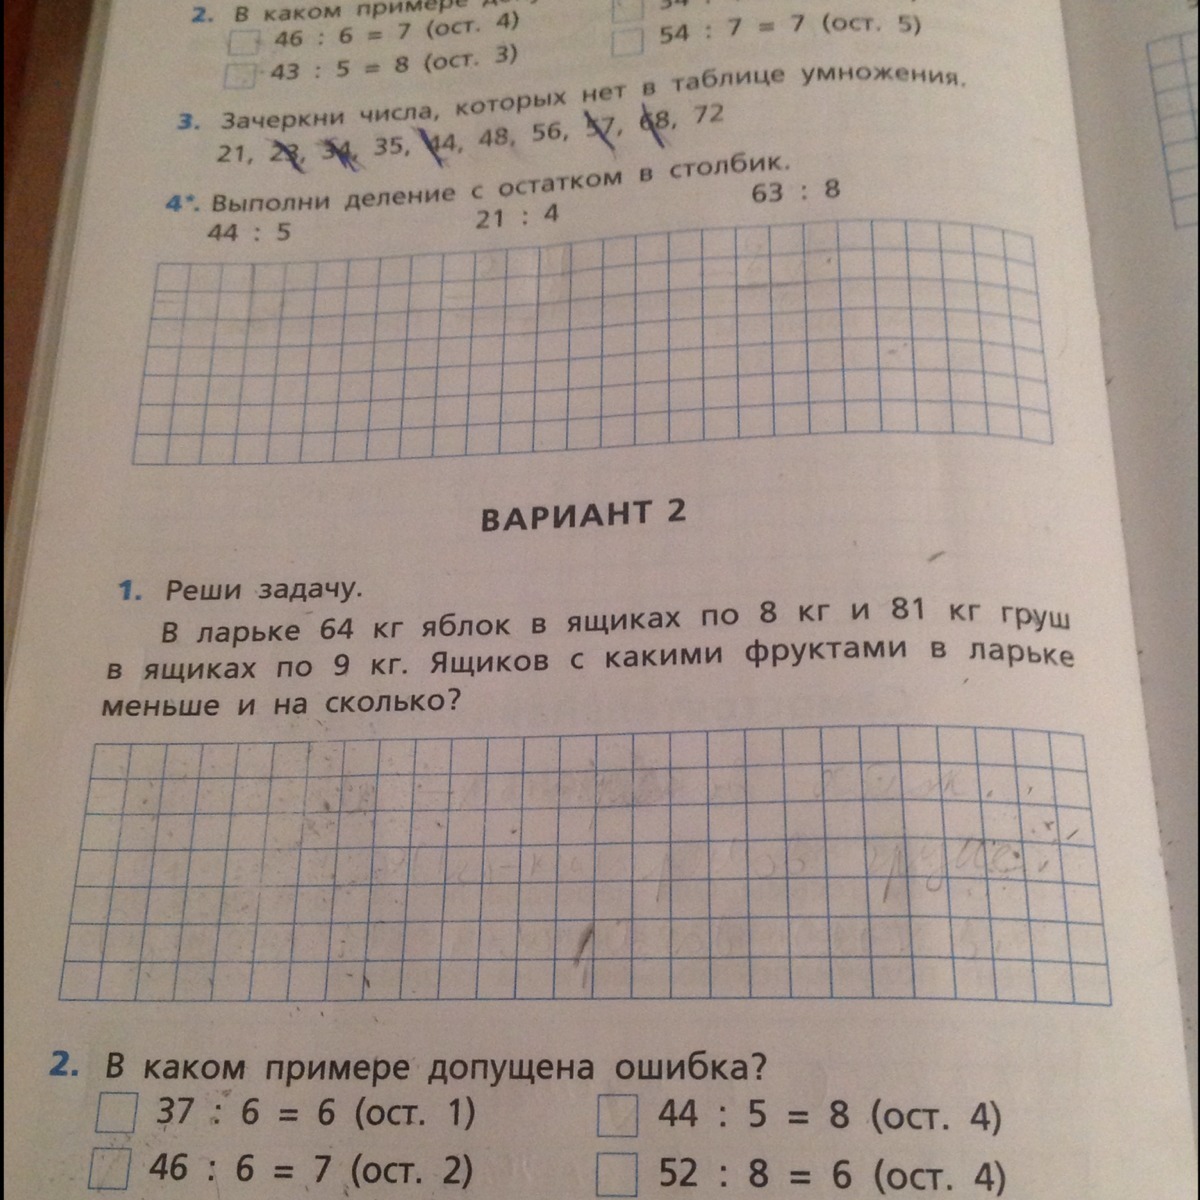 2. В каком примере
46 : 6 = 7 (ост. 4)
54 : 7 = 7 (ост. 5)
43 : 5 = 8 (ост. 3)
3. Зачеркни числа, которых нет в таблице умножения.
21, 23, 34, 35, 44, 48, 56, 57, 68, 72
4*. Выполни деление с остатком в столбик.
44 : 5 21 : 4 63 : 8
ВАРИАНТ 2
1. Реши задачу.
В ларьке 64 кг яблок в ящиках по 8 кг и 81 кг груш
в ящиках по 9 кг. Ящиков с какими фруктами в ларьке
меньше и на сколько?
2. В каком примере допущена ошибка?
37 : 6 = 6 (ост. 1) 44 : 5 = 8 (ост. 4)
46 : 6 = 7 (ост. 2) 52 : 8 = 6 (ост. 4)